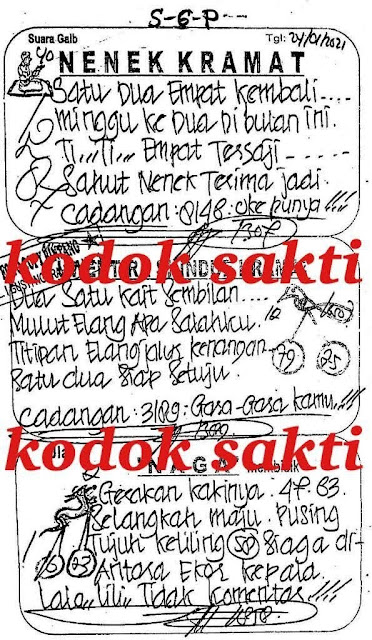 S-G-P
Suara Gaib Tgl: 24/01/2021
NENEK KRAMAT
Satu Dua Empat kembali....
minggu ke Dua Di bulan ini.
Ti,,,Ti,,, Empat Tersaji
Sahut Nenek Terima jadi.
Cadangan: 0148: oke punya!!!
kodok sakti
Dua Satu kait Sembilan....
Mulut Elang Apa Salahku.
Titipan Elang jalur kenangan
79 25
Satu dua Siap Setuju.
Cadangan: 3129: Gasa-Gasa kamu!!!
kodok sakti
NAGA Membisik
Gerakan kakinya. 47. 83.
Selangkah maju. Pusing
Tujuh keliling 50 Siaga di-
Antara Ekor kepala.
Lala,, lili,, Tidak komentar!!!